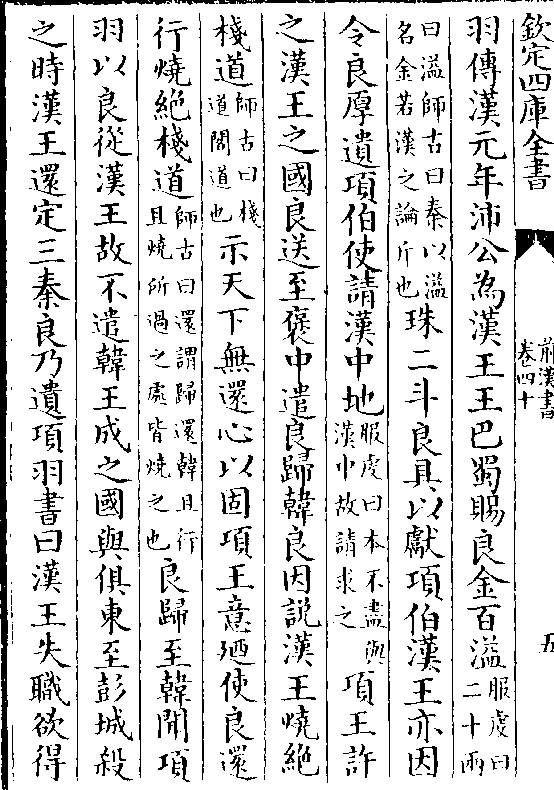 欽定四庫全書
前漢書
卷四十
五
羽傳漢元年沛公為漢王王巴蜀賜良金百溢服虔曰二十兩
曰溢師古曰秦以溢名金若漢之論斤也珠二斗良具以獻項伯漢王亦因
令良厚遺項伯使請漢中地服虔曰本不盡與漢中故請求之項王許
之漢王之國良送至褒中遣良歸韓良因說漢王燒絕
棧道師古曰棧道閣道也示天下無還心以固項王意廼使良還
行燒絕棧道師古曰還謂歸還韓且行且燒所過之處皆燒之也良歸至韓聞項
羽以良從漢王故不遣韓王成之國與俱東至彭城殺
之時漢王還定三秦良乃遺項羽書曰漢王失職欲得